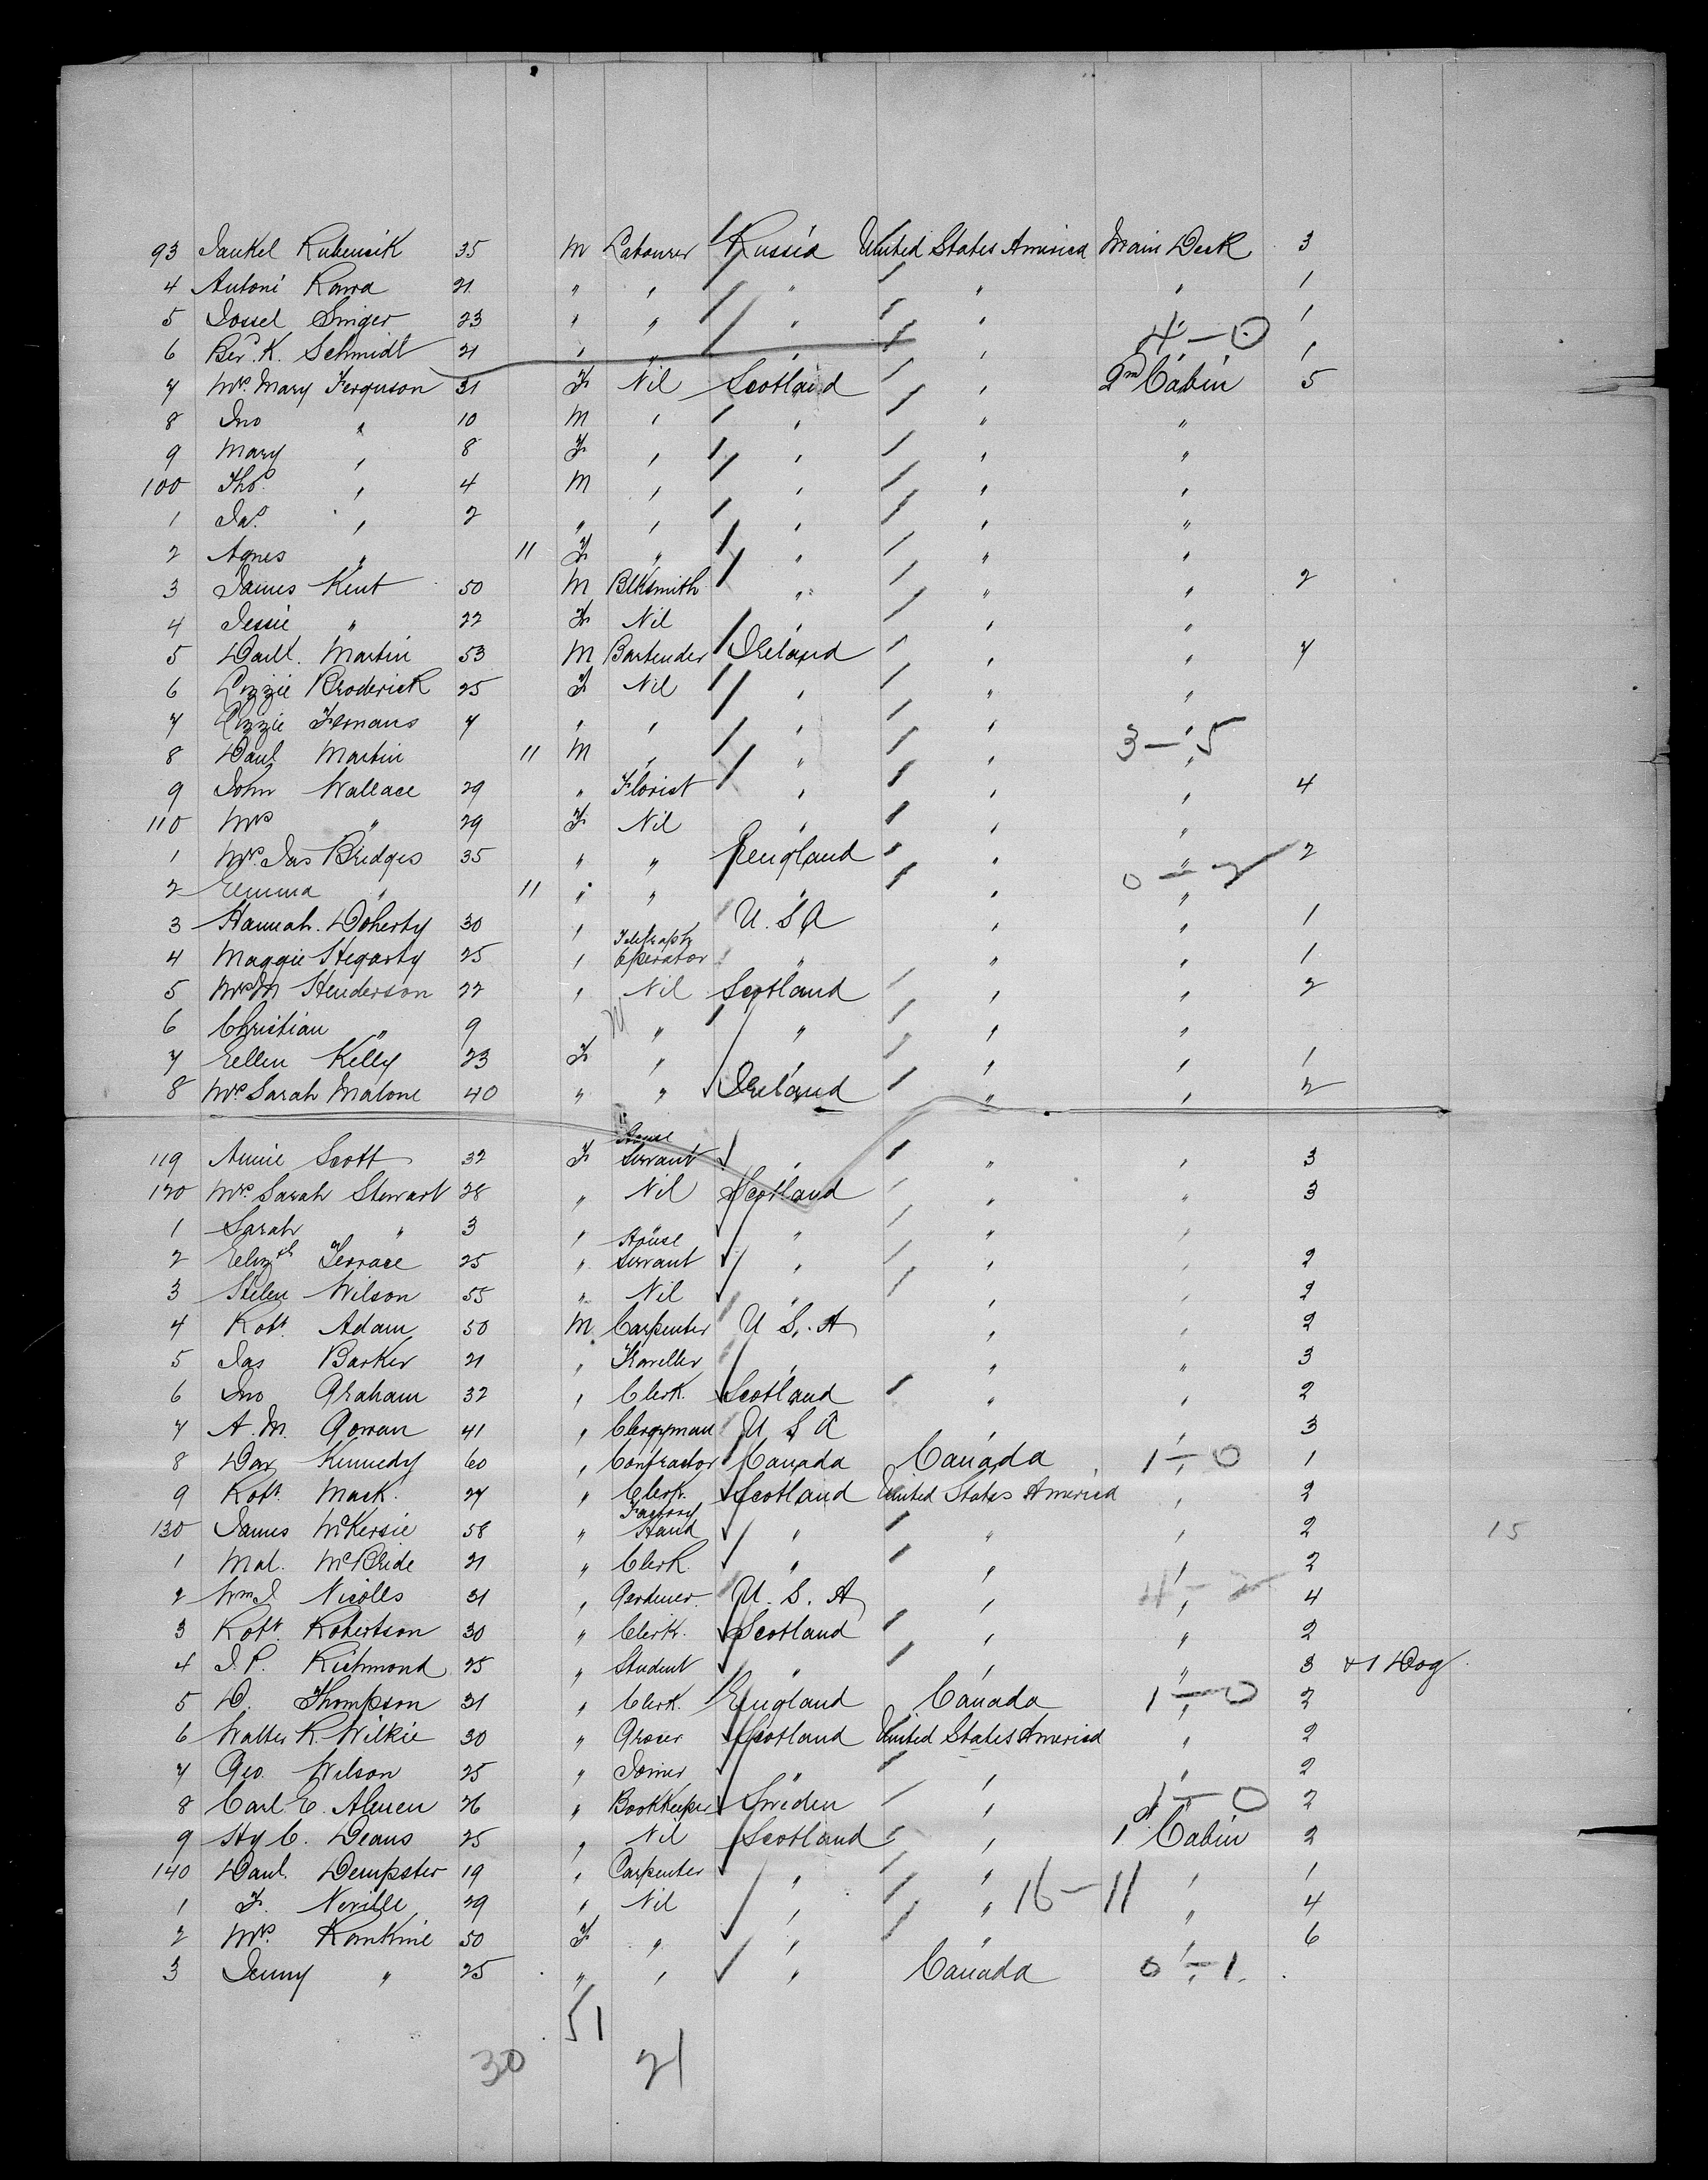 93 Jankel Rubensik 35 M Labourer Russia United States America Main Deck 3
4 Antoni Rawa 21 " " " " " 1
5 Jossel Singer 23 " " " " " 1
4—0
6 Ber. K. Schmidt 21 " " " " " 1
7 Mrs. Mary Ferguson 31 F Nil Scotland " 2nd Cabin 5
8 Jno " 10 M " " " "
9 Mary " 8 F " " " "
100 Thos. " 4 M " " " "
1 Jas. " 2 " " " " "
2 Agnes " 11 F " " " "
3 James Kent 50 M Blksmith " " " 2
4 Jessie " 22 F Nil " " "
5 Danl. Martin 53 M Bartender Ireland " " 4
6 Lizzie Broderick 25 F Nil " " "
7 Lizzie 7 " " " " "
3—5
8 Danl Martin 11 M " " " "
9 John Wallace 29 " Florist " " " 4
110 Mrs " 29 F Nil " " "
1 Mrs. Jas Bridges 35 " " England " " 2
0—2
2 Emma " 11 " " " " "
3 Hannah Doherty 30 " U.S.A " " 1
4 Maggie Hegarty 25 " Telegraph Operator " " " 1
5 Mrs M Henderson 22 " Nil Scotland " " 2
6 Christian " 9 M " " " "
7 Ellen Kelly 23 F " " " " 1
8 Mrs Sarah Malone 40 " " Ireland " " 2
119 Annie Scott 32 F House Servant " " " 3
120 Mrs. Sarah Stewart 28 " Nil Scotland " " 3
1 Sarah " 3 " " " " "
2 Elizth Terrace 25 " House Servant " " " 2
3 Helen Wilson 55 " Nil " " " 2
4 Robt. Adam 50 M Carpenter U.S.A " " 2
5 Jas Barker 21 " Traveller " " " 3
6 Jno Graham 32 " Clerk. Scotland " " 2
7 A. M. Gowan 41 " Clergyman U S A " " 3
8 Dav Kennedy 60 " Contractor Canada Canada 1—0 1
9 Robt. Mack. 27 " Clerk. Scotland United States America " 2
130 James McKersie 58 " Factory Hand " " " 2 15
1 Mal. McBride 21 " Clerk " " " 2
2 Wm J Nicolls 31 " Gardener. U. S. A " 4—2 4
3 Robt. Robertson 30 " Clerk. Scotland " " 2
4 J. P. Richmond 25 " Student " " " 3 & 1 Dog
5 D. Thompson 31 " Clerk. England Canada 1—0 2
6 Walter R. Wilkie 30 " Grocer Scotland United States America " 2
7 Geo. Wilson 25 " Joiner " " " 2
8 Carl E. 26 " Bookkeeper Sweden " 1—0 2
9 Hy C. Deans 25 " Nil Scotland " 1st Cabin 2
140 Danl. Dempster 19 " Carpenter " " " 1
1 F. Neville 29 " Nil " " 16—11 " 4
2 Mrs. Rankine 50 F " " " " 6
3 Jenny " 25 " " " Canada 0—1
51
30 21